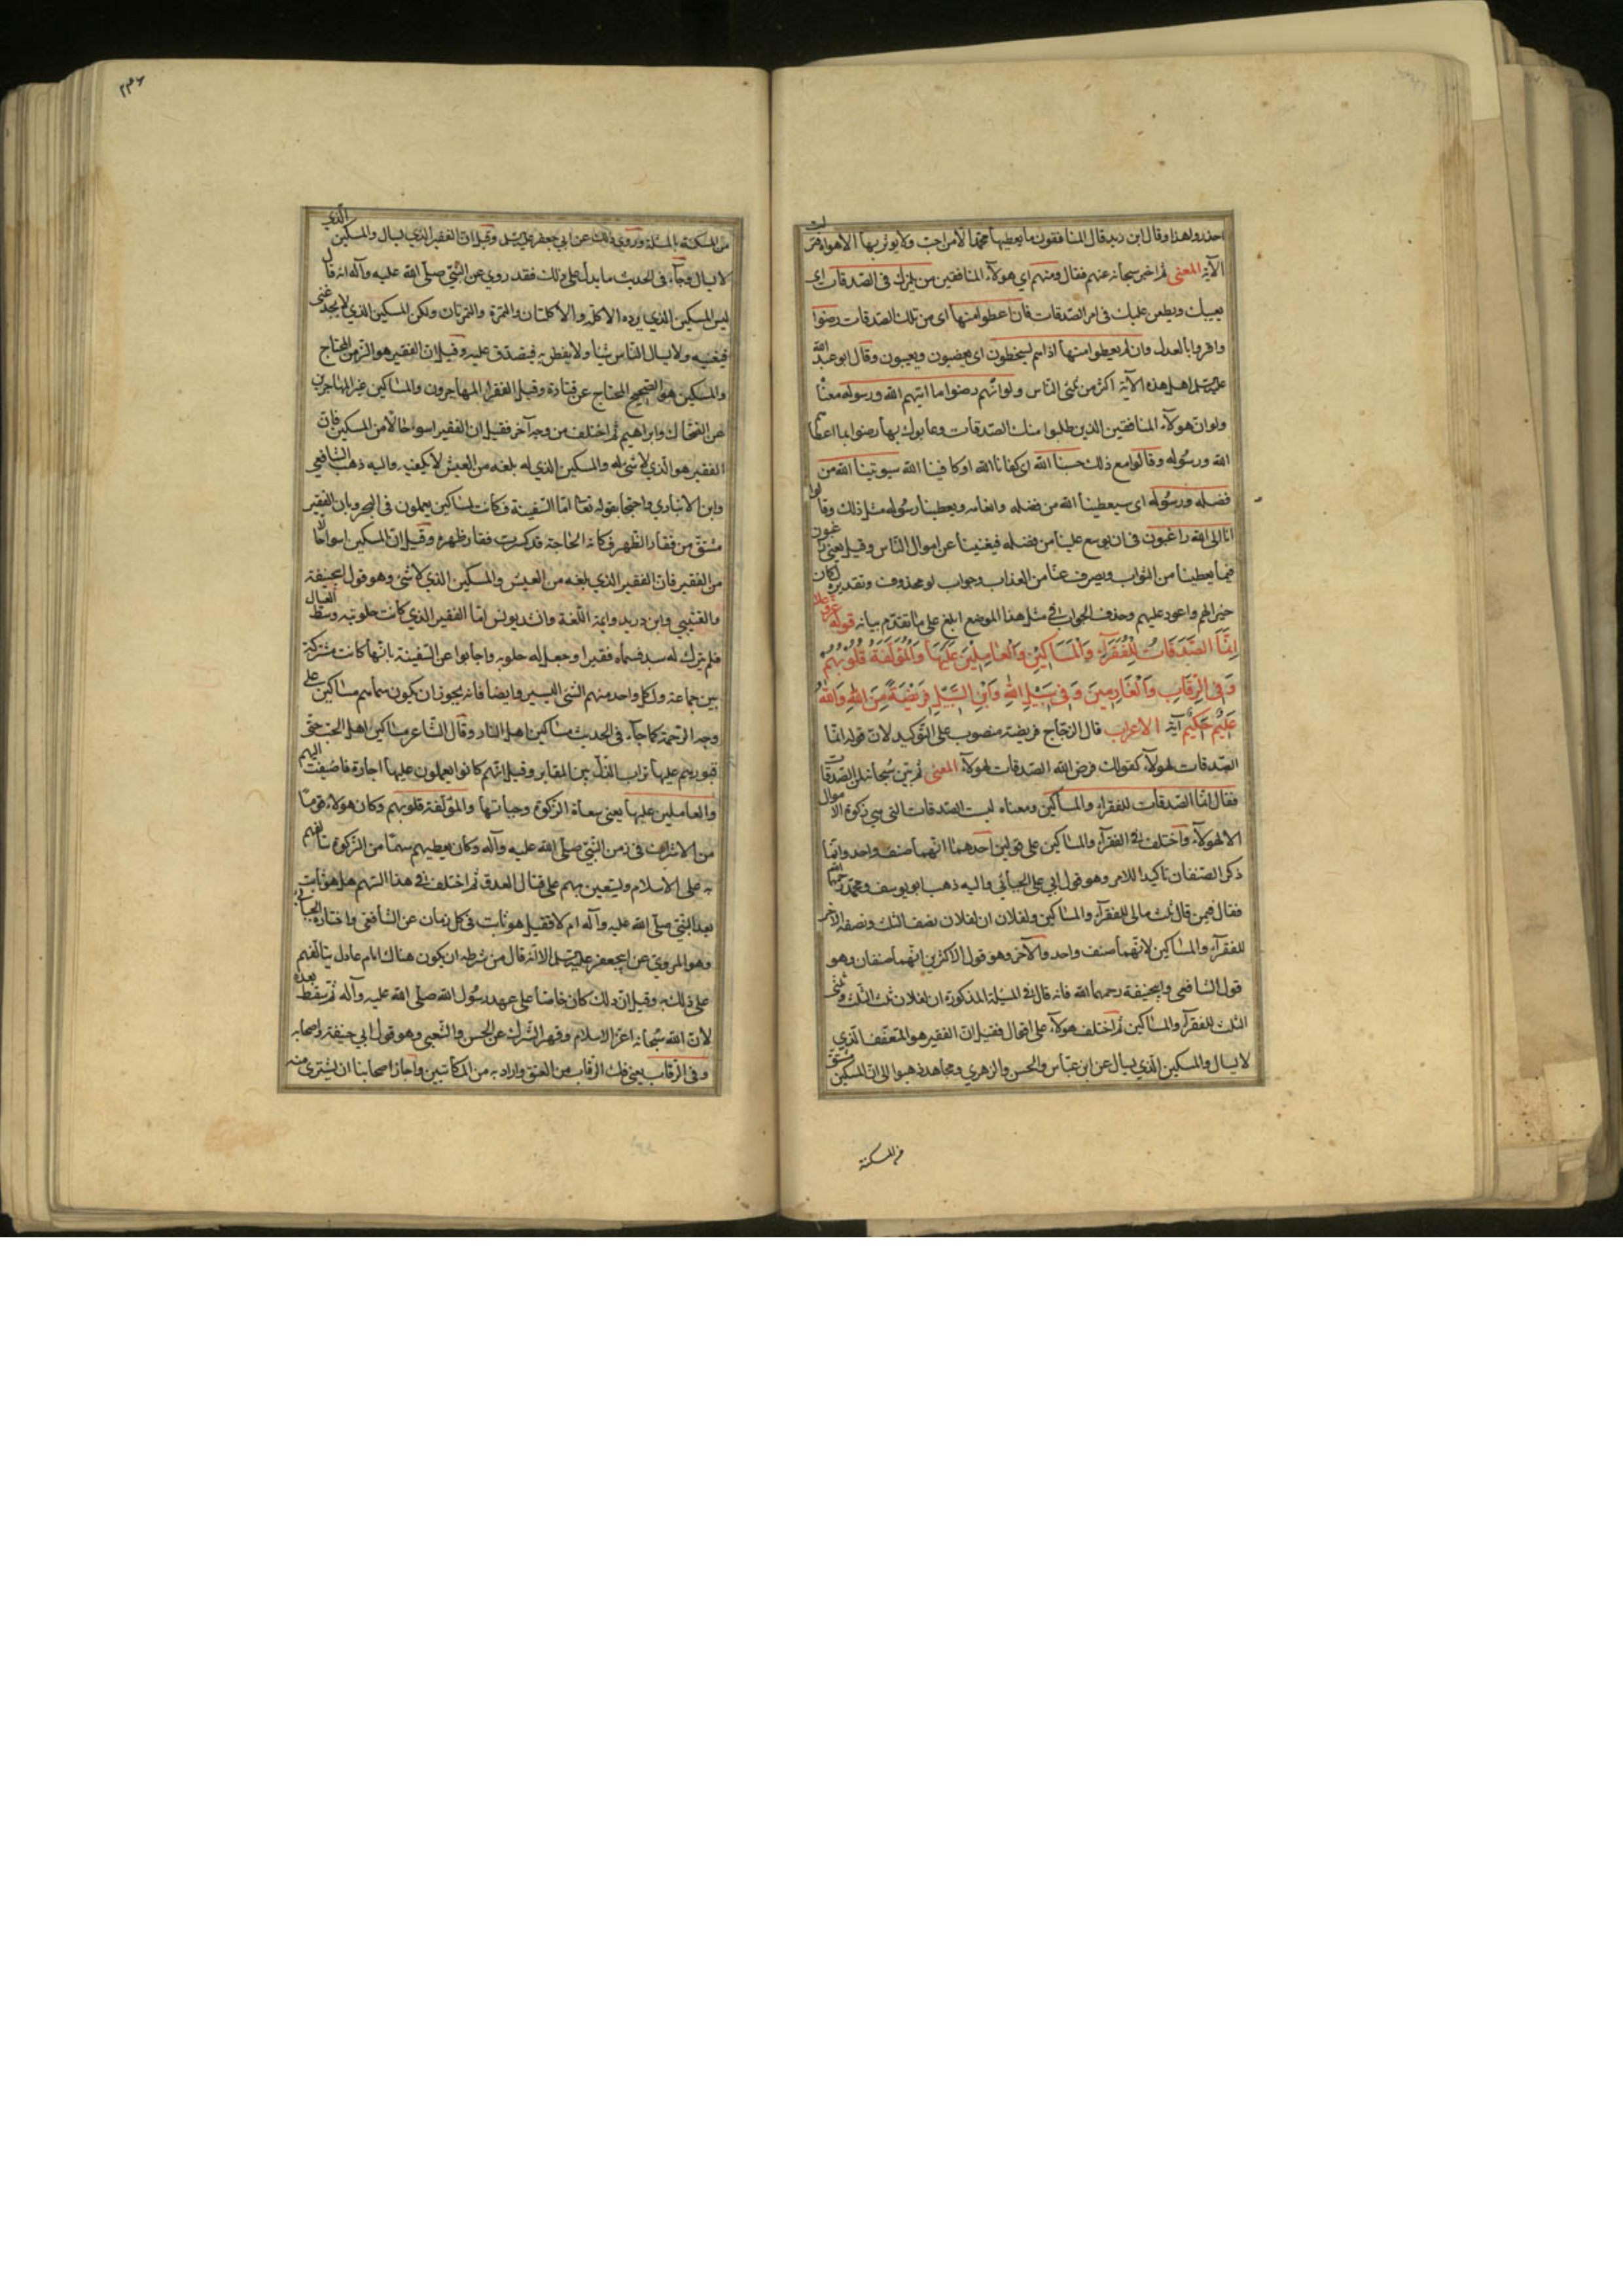 احذروا هذا وقال ابن زيد قال المنافقون ما يعطيها محمد الا من احب ولا يوثر بها الا هواه فنزلت
الآية المعنى ثم اخبر سبحانه عنهم فقال ومنهم اي هولاء المنافقين من يلمزك في الصدقات اي
يعيبك ويطعن عليك في امر الصدقات فان اعطوا منها اي من تلك الصدقات رضوا
واقروا بالعدل وان لم يعطوا منها اذا هم يسخطون اي يغضبون ويعيبون وقال ابو عبد الله
عليه السلم اهل هذه الآية اكثر من ثلثي الناس ولو انهم رضوا ما اتيهم الله ورسوله معناه
ولو ان هولاء المنافقين الذين طلبوا منك الصدقات وعابوك بها رضوا بما اعطاهم
الله ورسوله وقالوا مع ذلك حسبنا الله اي كفانا الله او كافينا الله سيوتينا الله من
فضله ورسوله اي سيعطينا الله من فضله وانعامه ويعطينا رسوله مثل ذلك وقالوا
انا الى الله راغبون في ان يوسع علينا من فضله فيغنينا عن اموال الناس وقيل يعني راغبون
فيما يعطينا من الثواب ويصرف عنا من العذاب وجواب لو محذوف وتقديره لكان
خيرا لهم واعود عليهم وحذف الجواب في مثل هذا الموضع ابلغ على ما تقدم بيانه قوله عز وعلا
اِنَّمَا الصَّدَقَاتُ لِلْفُقَرَآءِ وَالْمَسَاكِينِ وَالْعَامِلِينَ عَلَيْهَا وَالْمُؤَلَّفَةِ قُلُوبُهُمْ
وَفِي الرِّقَابِ وَالْغَارِمِينَ وَفِي سَبِيلِ اللهِ وَابْنِ السَّبِيلِ فَرِيضَةً مِنَ اللهِ وَاللهُ
عَلِيمٌ حَكِيمٌ آية الاعراب قال الزجاج فريضة منصوب على التوكيد لان قوله انما
الصدقات لهولاء كقولك فرض الله الصدقات لهولاء المعنى ثم بين سبحانه لمن الصدقات
فقال انما الصدقات للفقراء والمساكين ومعناه ليست الصدقات التي هي زكوة الاموال
الا لهولاء واختلف في الفقراء والمساكين على قولين احدهما انهما صنف واحد وانما
ذكر الصنفان تاكيدا للامر وهو قول ابي علي الجبائي واليه ذهب ابو يوسف ومحمد رحمهما الله
فقال فيمن قال ثلث مالي للفقراء والمساكين ولفلان ان لفلان نصف الثلث ونصفه الآخر
للفقراء والمساكين لانهما صنف واحد والآخر وهو قول الاكثرين انهما صنفان وهو
قول الشافعي وابي حنيفة رحمهما الله فانه قال في المسئلة المذكورة ان لفلان ثلث الثلث وثلثي
الثلث للفقراء والمساكين ثم اختلف هولاء على اقوال فقيل ان الفقير هو المتعفف الذي
لا يسال والمسكين الذي يسال عن ابن عباس والحسن والزهري ومجاهد ذهبوا الى ان المسكين مشتق
من المسكنة
٢٣٦
من المسكنة بالمسئلة وروي ذلك عن ابي جعفر عليه السلم وقيل ان الفقير الذي يسال والمسكين الذي
لا يسال وجاء في الحديث ما يدل على ذلك فقد روي عن النبي صلى الله عليه وآله انه قال
ليس المسكين الذي يرده الاكلة والاكلتان والتمرة والتمرتان ولكن المسكين الذي لا يجد غنى
فيغنيه ولا يسال الناس شيئا ولا يفطن به فيتصدق عليه وقيل ان الفقير هو الزمن المحتاج
والمسكين هو الصحيح المحتاج عن قتادة وقيل الفقراء المهاجرون والمساكين غير المهاجرين
عن الضحاك وابراهيم ثم اختلف من وجه آخر فقيل ان الفقير اسوا حالا من المسكين فان
الفقير هو الذي لا شئ له والمسكين الذي له بلغة من العيش لا يكفيه واليه ذهب الشافعي
وابن الانباري واحتجا بقوله تعالى اما السفينة فكانت لمساكين يعملون في البحر وبان الفقير
مشتق من فقار الظهر فكان الحاجة قد كسرت فقار ظهره وقيل ان المسكين اسوا حالا
من الفقير فان الفقير الذي له بلغة من العيش والمسكين الذي لا شئ وهو قول ابي حنيفة
والقتيبي وابن دريد وايمة اللغة وانشد يونس اما الفقير الذي كانت حلوبته وسط العيال
فلم يترك له سبد فسماه فقيرا وجعل له حلوبة واجابوا عن السفينة بانها كانت مشتركة
بين جماعة ولكل واحد منهم الشئ اليسير وايضا فانه يجوز ان يكون سماهم مساكين على
وجه الرحمة كما جاء في الحديث مساكين اهل النار وقال الشاعر مساكين اهل الحب حتى
قبورهم عليها تراب الذل بين المقابر وقيل انهم كانوا يعملون عليها اجارة فاضيفت اليهم
والعاملين عليها يعني سعاة الزكوة وجباتها والمؤلفة قلوبهم وكان هولاء قوما
من الاشراف في زمن النبي صلى الله عليه وآله وكان يعطيهم سهما من الزكوة يتالفهم
به على الاسلام ويستعين بهم على قتال العدو ثم اختلف في هذا السهم هل هو ثابت
بعد النبي صلى الله عليه وآله ام لا فقيل هو ثابت في كل زمان عن الشافعي واختاره الجبائي
وهو المروي عن ابي جعفر عليه السلم الا انه قال من شرطه ان يكون هناك امام عادل يتالفهم
على ذلك به وقيل ان ذلك كان خاصا على عهد رسول الله صلى الله عليه وآله ثم سقط بعده
لان الله سبحانه اعز الاسلام وقهر الشرك عن الحسن والشعبي وهو قول ابي حنيفة واصحابه
وفي الرقاب يعني فك الرقاب من العتق واراد به من المكاتبين واجاز اصحابنا ان يشترى منه